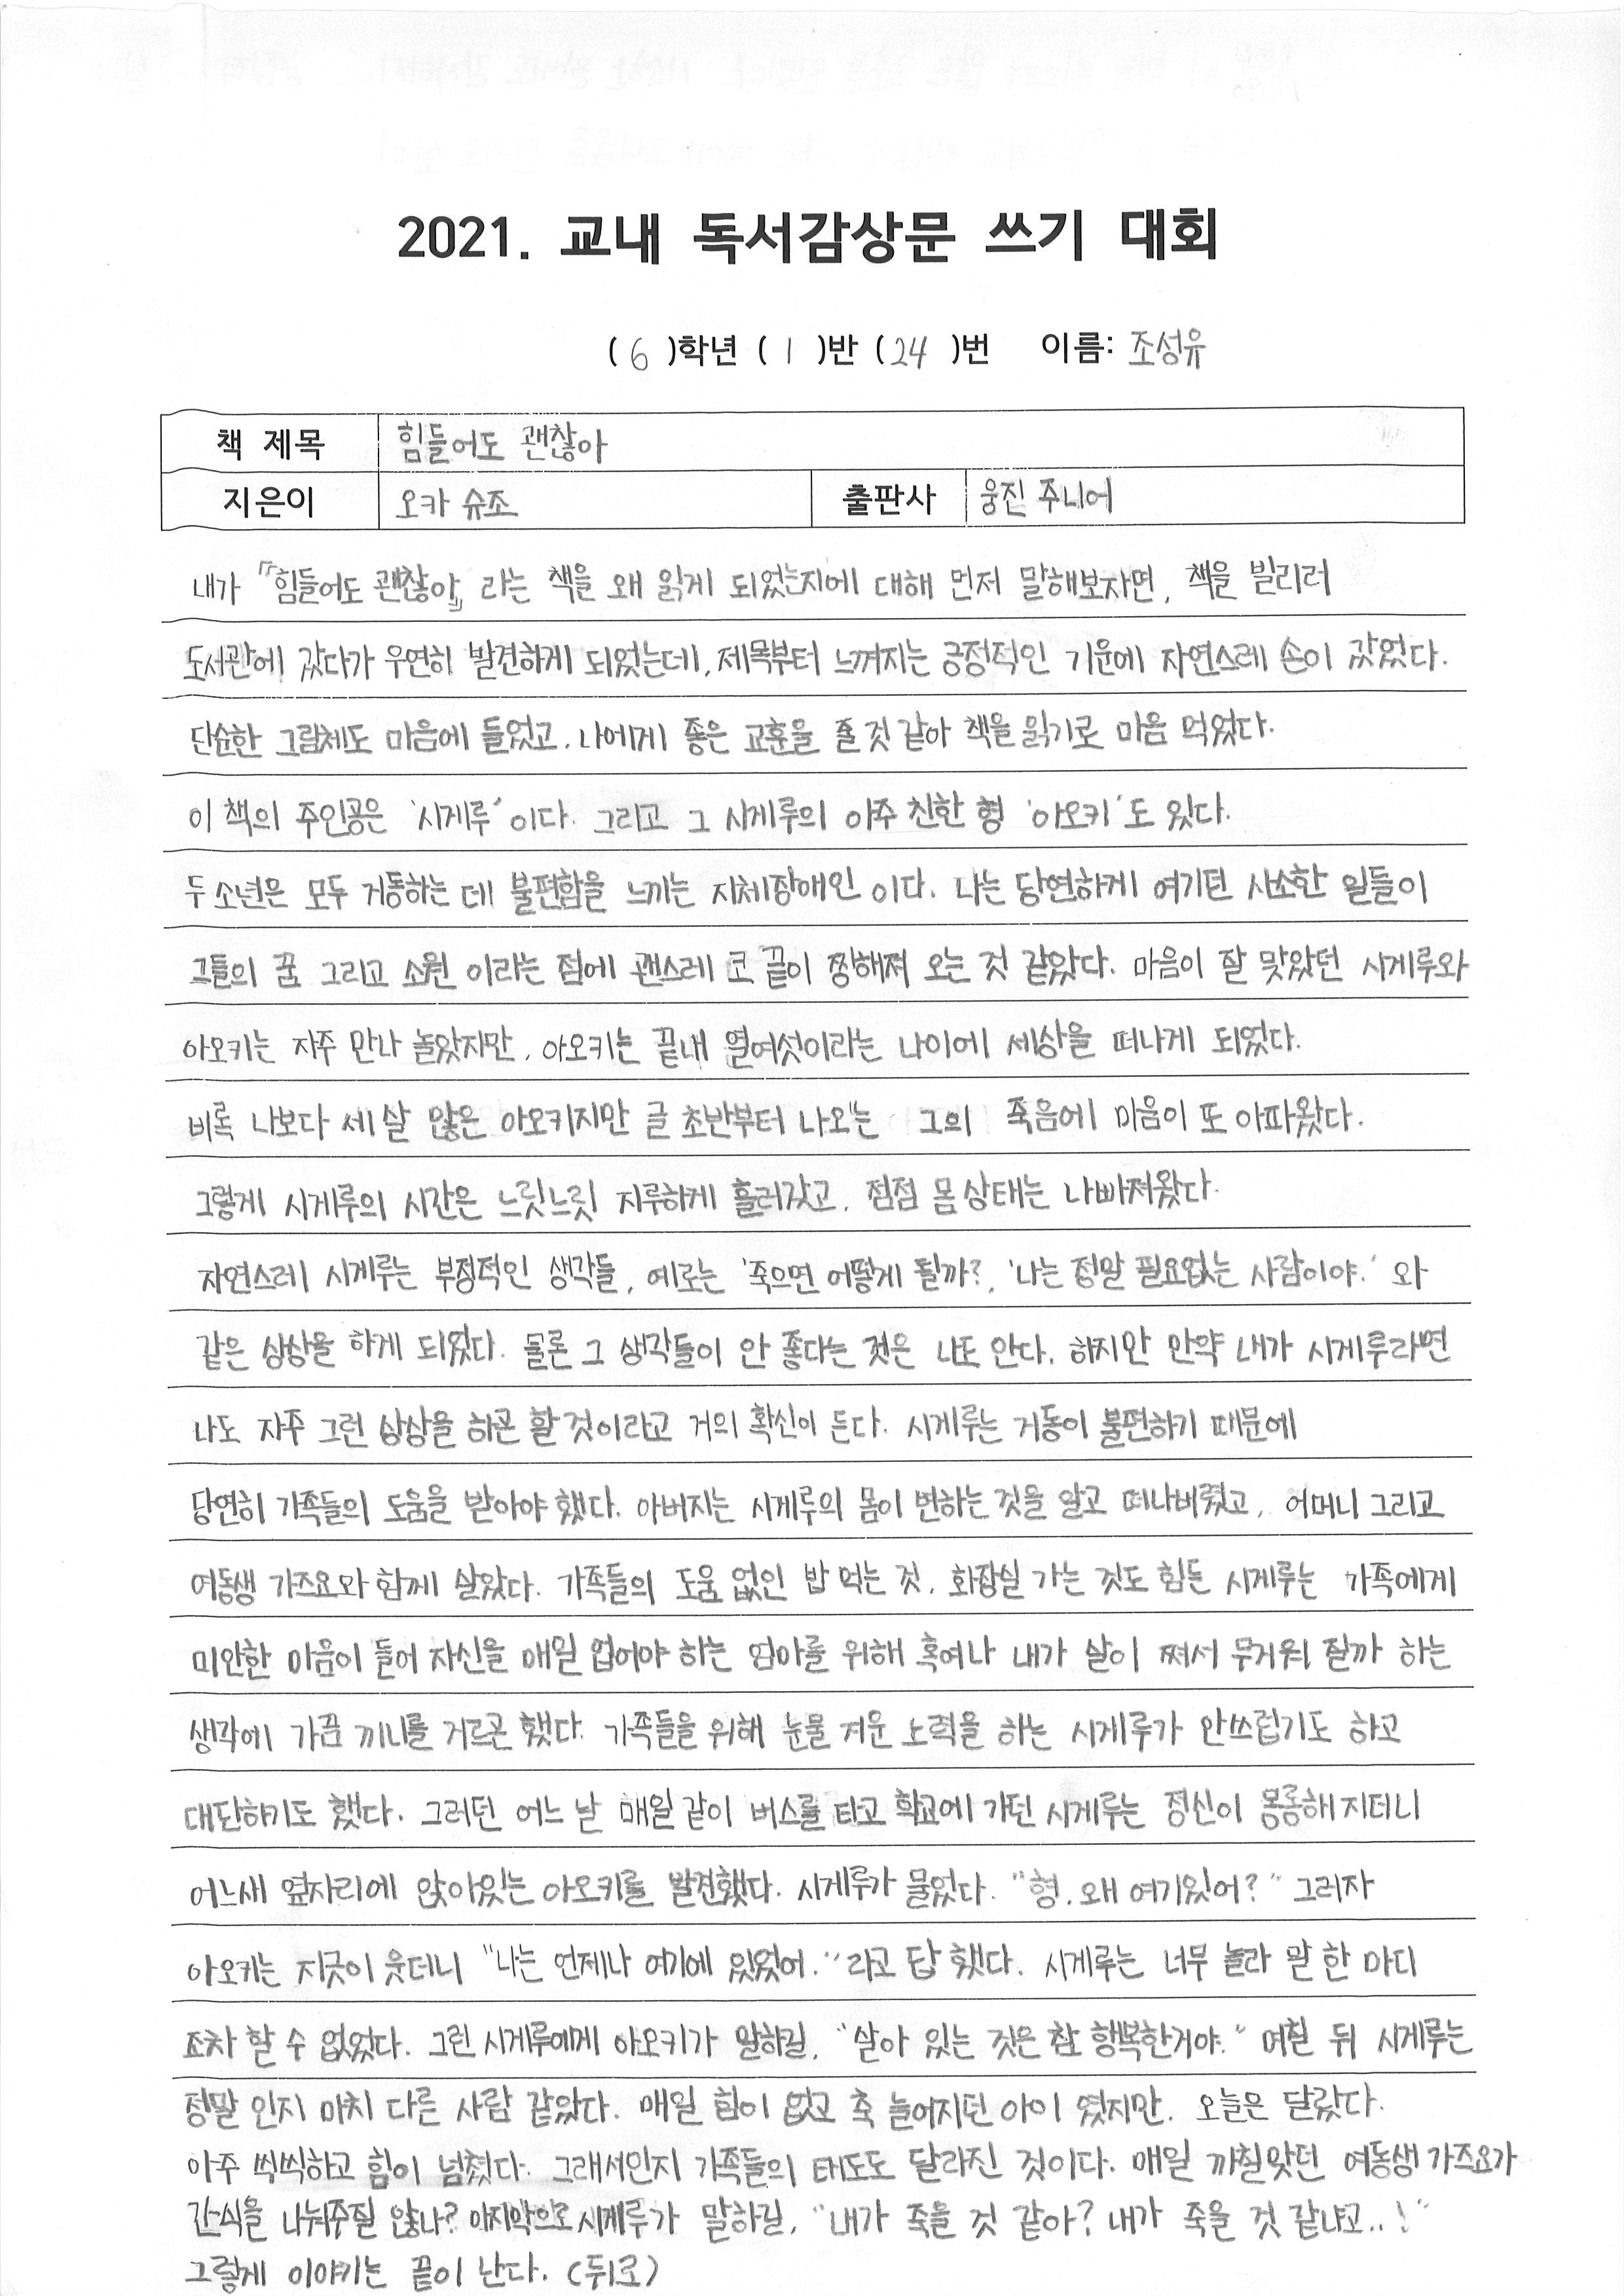 2021. 교내 독서감상문 쓰기 대회
( 6 )학년 ( 1 )반 ( 24 )번 이름: 조성유
책 제목 힘들어도 괜찮아
지은이 오카 슈조 출판사 웅진 주니어
내가 『힘들어도 괜찮아』 라는 책을 왜 읽게 되었는지에 대해 먼저 말해보자면, 책을 빌리러
도서관에 갔다가 우연히 발견하게 되었는데, 제목부터 느껴지는 긍정적인 기운에 자연스레 손이 갔었다.
단순한 그림체도 마음에 들었고, 나에게 좋은 교훈을 줄 것 같아 책을 읽기로 마음 먹었다.
이 책의 주인공은 '시게루' 이다. 그리고 그 시게루의 아주 친한 형 '아오키' 도 있다.
두 소년은 모두 거동하는 데 불편함을 느끼는 지체장애인 이다. 나는 당연하게 여기던 사소한 일들이
그들의 꿈 그리고 소원 이라는 점에 괜스레 코 끝이 찡해져 오는 것 같았다. 마음이 잘 맞았던 시게루와
아오키는 자주 만나 놀았지만, 아오키는 끝내 열여섯이라는 나이에 세상을 떠나게 되었다.
비록 나보다 세 살 많은 아오키지만 글 초반부터 나오는 그의 죽음에 마음이 또 아파왔다.
그렇게 시게루의 시간은 느릿느릿 지루하게 흘러갔고, 점점 몸 상태는 나빠져왔다.
자연스레 시게루는 부정적인 생각들, 예로는 '죽으면 어떻게 될까?, '나는 정말 필요없는 사람이야.' 와
같은 상상을 하게 되었다. 물론 그 생각들이 안 좋다는 것은 나도 안다. 하지만 만약 내가 시게루라면
나도 자주 그런 상상을 하곤 할 것이라고 거의 확신이 든다. 시게루는 거동이 불편하기 때문에
당연히 가족들의 도움을 받아야 했다. 아버지는 시게루의 몸이 변하는 것을 알고 떠나버렸고, 어머니 그리고
여동생 가즈요와 함께 살았다. 가족들의 도움 없인 밥 먹는 것, 화장실 가는 것도 힘든 시게루는 가족에게
미안한 마음이 들어 자신을 매일 업어야 하는 엄마를 위해 혹여나 내가 살이 쪄서 무거워 질까 하는
생각에 가끔 끼니를 거르곤 했다. 가족들을 위해 눈물 겨운 노력을 하는 시게루가 안쓰럽기도 하고
대단하기도 했다. 그러던 어느 날 매일 같이 버스를 타고 학교에 가던 시게루는 정신이 몽롱해 지더니
어느새 옆자리에 앉아있는 아오키를 발견했다. 시게루가 물었다. "형, 왜 여기있어?" 그러자
아오키는 지긋이 웃더니 "나는 언제나 여기에 있었어." 라고 답 했다. 시게루는 너무 놀라 말 한 마디
조차 할 수 없었다. 그런 시게루에게 아오키가 말하길, "살아 있는 것은 참 행복한거야." 며칠 뒤 시게루는
정말 인지 마치 다른 사람 같았다. 매일 힘이 없고 축 늘어지던 아이 였지만, 오늘은 달랐다.
아주 씩씩하고 힘이 넘쳤다. 그래서인지 가족들의 태도도 달라진 것이다. 매일 까칠맞던 여동생 가즈요가
간식을 나눠주질 않나? 마지막으로 시게루가 말하길, "내가 죽을 것 같아? 내가 죽을 것 같냐고..!"
그렇게 이야기는 끝이 난다. (뒤로)